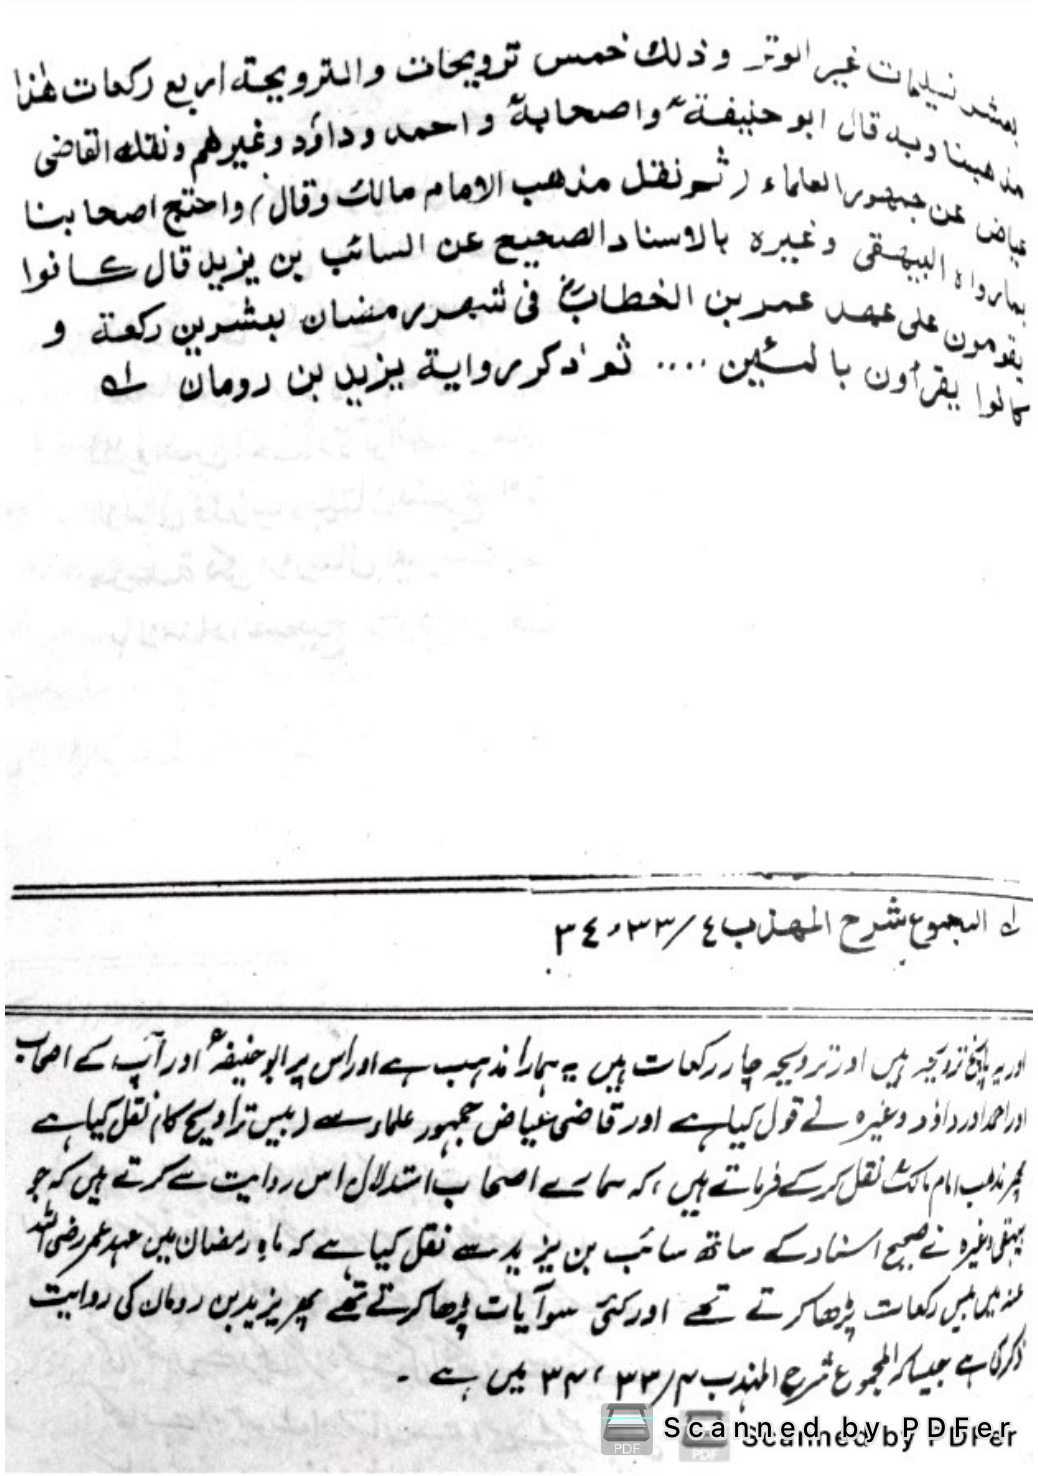 بعشر تسليمات غير الوتر وذلك خمس ترويحات والترويحة اربع ركعات هذا
مذهبنا وبه قال ابو حنيفةؒ واصحابهؒ واحمد وداؤد وغيرهم ونقله القاضى
عياض عن جمهور العلماء (ثم نقل مذهب الامام مالك وقال) واحتج اصحابنا
بما رواه البيهقى وغيره بالاسناد الصحيح عن السائب بن يزيد قال كانوا
يقومون على عهد عمر بن الخطابؓ فى شهر رمضان بعشرين ركعة و
كانوا يقرأون بالمئين .... ثم ذكر رواية يزيد بن رومان ؎
؎ المجموع شرح المهذب ٤/٣٣، ٣٤
اور یہ پانچ ترویحہ ہیں اور ترویحہ چار رکعات ہیں یہ ہمارا مذہب ہے اور اس پر ابو حنیفہؒ اور آپ کے اصحاب
اور احمد اور داؤد وغیرہ نے قول کیا ہے اور قاضی عیاض جمہور علماء سے (بیس تراویح کا) نقل کیا ہے
پھر مذہب امام مالکؒ نقل کر کے فرماتے ہیں، کہ ہمارے اصحاب استدلال اس روایت سے کرتے ہیں کہ جو
بیہقی وغیرہ نے صحیح اسناد کے ساتھ سائب بن یزید سے نقل کیا ہے کہ ماہ رمضان میں عہد عمر رضی اللہ
عنہ میں بیس رکعات پڑھا کرتے تھے اور کئی سو آیات پڑھا کرتے تھے پھر یزید بن رومان کی روایت
ذکر کی ہے جیسا کہ المجموع شرح المہذب ۴/۳۳، ۳۴ میں ہے ۔
Scanned by PDFer
Scanned by PDFer